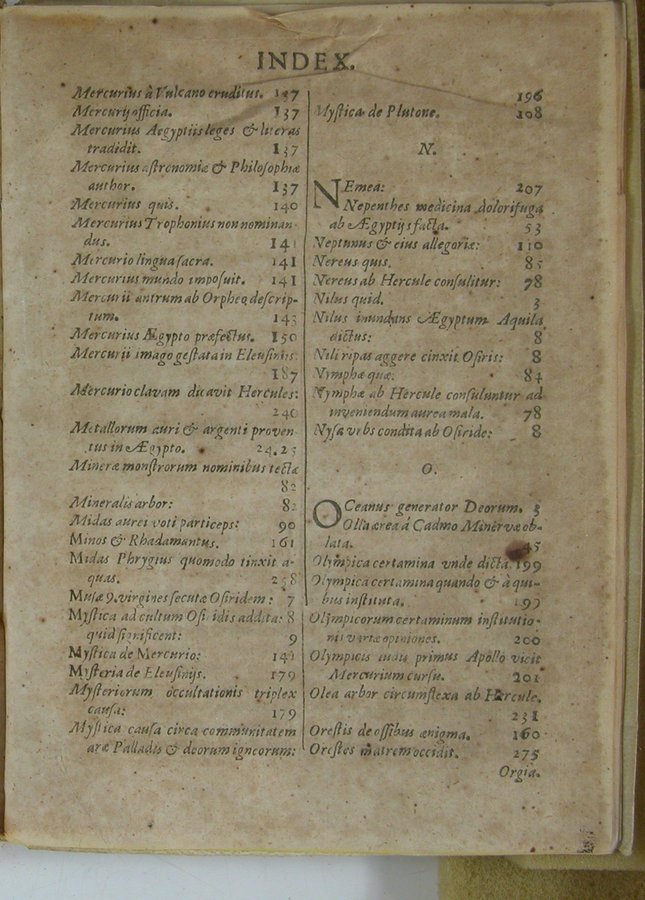 INDEX.
Mercurius à Vulcano eruditus. 137
Mercurij officia. 137
Mercurius Aegyptiis leges & literas
tradidit. 137
Mercurius astronomiæ & Philosophiæ
author. 137
Mercurius quis. 140
Mercurius Trophonius non nominan-
dus. 141
Mercurio lingua sacra. 141
Mercurius mundo imposuit. 141
Mercurii antrum ab Orpheo descrip-
tum. 143
Mercurius Ægypto præfectus. 150
Mercurii imago gestata in Eleusiniis:
187
Mercurio clavam dicavit Hercules:
240
Metallorum auri & argenti proven-
tus in Ægypto. 24.25
Mineræ monstrorum nominibus tectæ
82
Mineralis arbor: 82
Midas aurei voti particeps: 90
Minos & Rhadamantus. 161
Midas Phrygius quomodo tinxit a-
quas. 258
Musæ 9. virgines secutæ Osiridem: 7
Mystica ad cultum Osiridis addita: 8
quid significent: 9
Mystica de Mercurio: 141
Mysteria de Eleusinijs. 179
Mysteriorum occultationis triplex
causa: 179
Mystica causa circa communitatem
aræ Palladis & deorum igneorum:
196
Mystica de Plutone. 108
N.
NEmea: 207
Nepenthes medicina dolorifuga
ab Ægyptijs facta. 53
Neptunus & eius allegoriæ: 110
Nereus quis. 85
Nereus ab Hercule consulitur: 78
Nilus quid. 3
Nilus inundans Ægyptum Aquila
dictus: 8
Nili ripas aggere cinxit Osiris: 8
Nymphæ quæ: 84
Nymphæ ab Hercule consuluntur ad
inveniendum aurea mala. 78
Nysa vrbs condita ab Osiride: 8
O.
OCeanus generator Deorum. 3
Olla ærea à Cadmo Minervæ ob-
lata. 45
Olympica certamina vnde dicta. 199
Olympica certamina quando & à qui-
bus instituta. 199
Olympicorum certaminum institutio-
nis variæ opiniones. 200
Olympicis ludis primus Apollo vicit
Mercurium cursu. 201
Olea arbor circumflexa ab Hercule.
231
Orestis de ossibus ænigma. 160
Orestes matrem occidit. 275
Orgia.